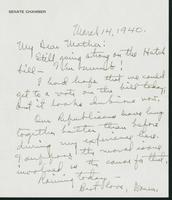 SENATE CHAMBER
March 14, 1940.
My Dear Mother:
Still going strong on the Hatch
bill —
I had hope that we could
get to a vote on the bill today,
but it looks dubious now.
Our Republicans have hung
together better than before
during my experience here.
I suppose the moral issue
involved is the cause for that.
Raining today —
Best love,